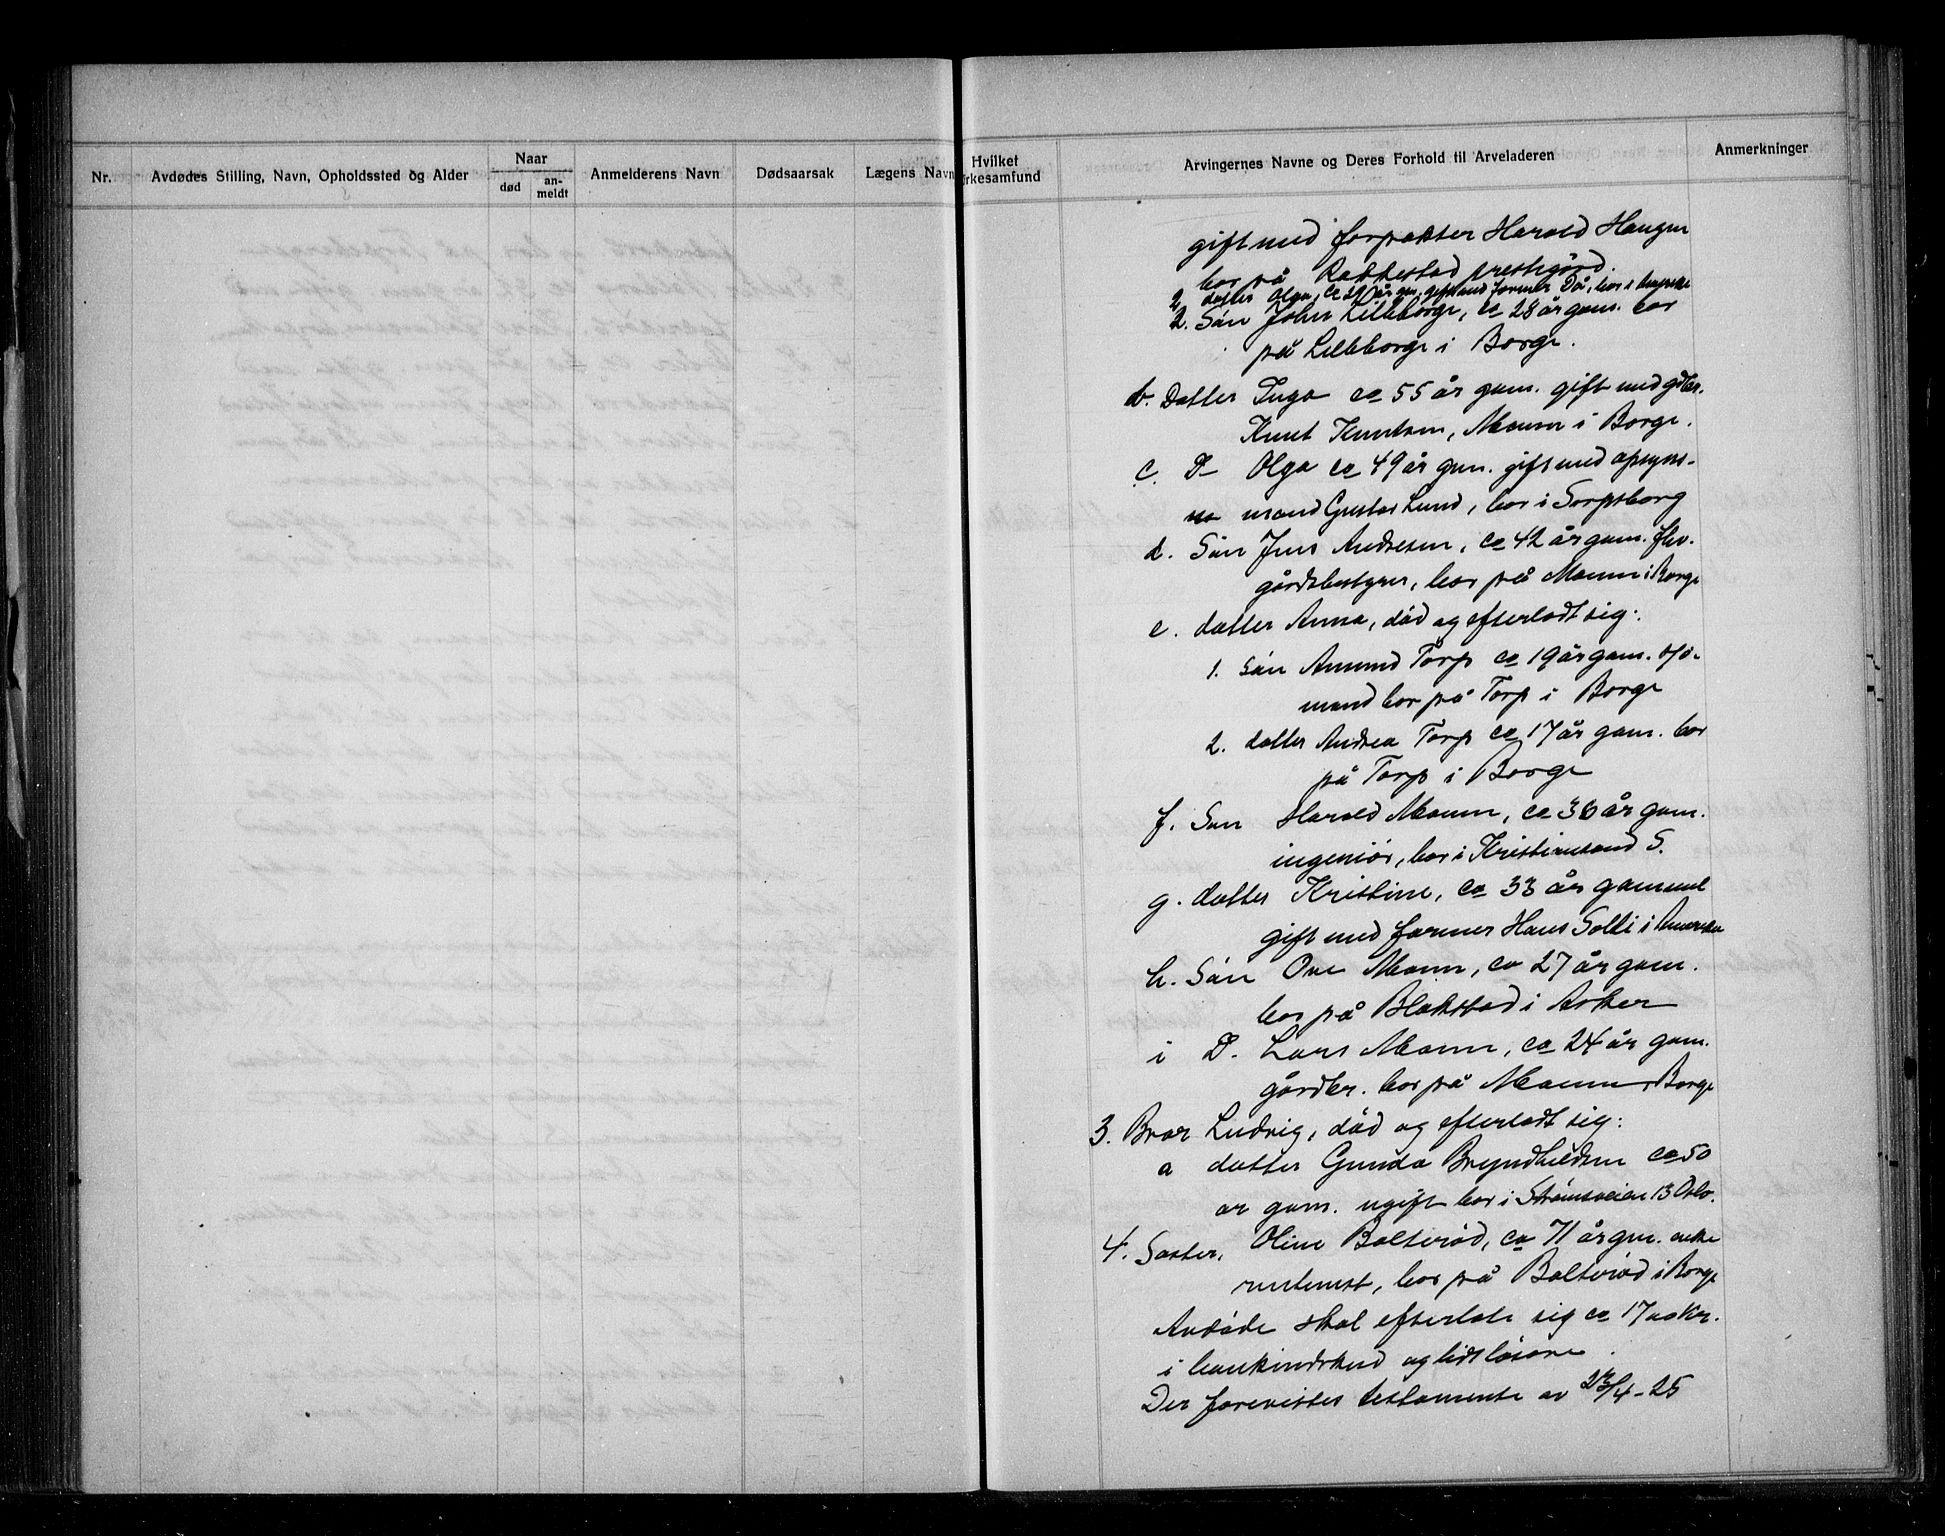 Nr.
Avdødes Stilling, Navn, Opholdssted og Alder
Naar
død
an-
meldt
Anmelderens Navn
Dødsaarsak
Lægens Navn
Hvilket
rkesamfund
Arvingernes Navne og Deres Forhold til Arveladeren
Anmerkninger
gift med forpakter Harald Haugen
bor på Rakkestad prestegård.
2. datter Olga, ca 30 år gm. gift med farmer Då, bor i Amerika
2. Søn John Lilleborge, ca 28 år gam. bor
på Lilleborge i Borge.
b. Datter Inga ca 55 år gam. gift med gdbr.
Knut Knutsen, Moum i Borge.
c. D- Olga ca 49 år gm. gift med opsyns-
mand Gustav Lund, bor i Sarpsborg
d. Søn Jens Andresen, ca 42 år gam. fhv.
gårdsbestyrer, bor på Moum i Borge
e. datter Anna, død og efterlodt sig:
1. søn Amund Torp ca 19 år gam.
mand bor på Torp i Borge
2. datter Andrea Torp ca 17 år gam. bor
på Torp i Borge
f. Søn Harald Moum, ca 36 år gam.
ingeniør, bor i Kristiansand S.
g. datter Kristine, ca 33 år gammel
gift med farmer Hans Solli i Amerika
h. Søn Ove Moum, ca 27 år gam.
bor på Blakstad i Asker
i D. Lars Moum, ca 24 år gam.
gårdbr. bor på Moum i Borge
3. Bror Ludvig, død og efterlodt sig:
a datter Gunda Bryndhildsen ca 50
år gam. ugift bor i Strømsveien 13 Oslo.
4. Søster, Oline Bolterød, ca 71 år gm. enke
rentenist, bor på Bolterød i Borge
Avdøde skal efterlate sig ca 17000 kr.
i bankindskud og litt løsøre.
Der forevistes testamente av 23/4-25